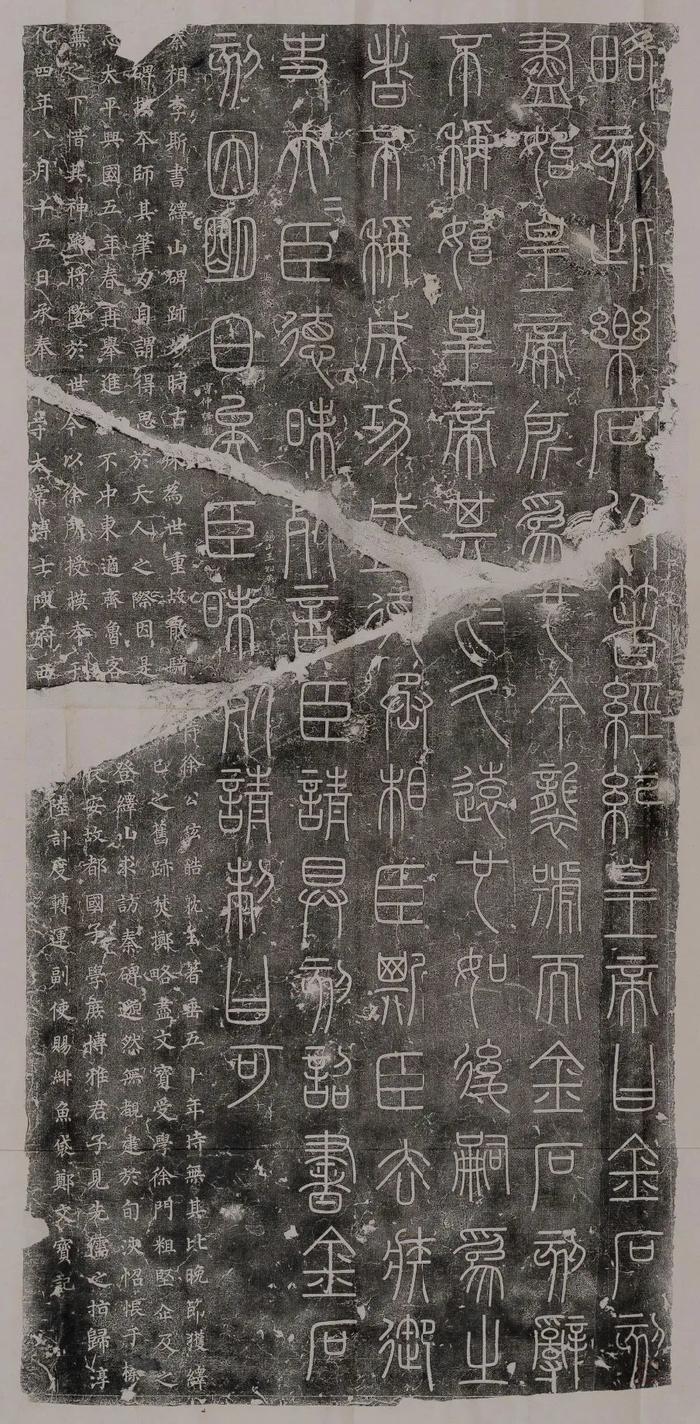 略刻此樂石以著經紀皇帝曰金石刻
盡始皇帝所為也今襲號而金石刻辭
不稱始皇帝其於久遠也如後嗣為之
者不稱成功盛德丞相臣斯臣去疾御
史夫=臣德昧死言臣請具刻詔書金石
刻因明白矣臣昧死請制曰可
秦相李斯書繹山碑跡妙時古殊為世重故散騎侍徐公鉉酷耽玉著垂五十年時無其比晚節獲繹
碑摸本師其筆力自謂得思於天人之際因是己之舊跡焚擲略盡文寶受學徐門粗堅企及之
志太平興國五年春再舉進士不中東適齊魯客登繹山求訪秦碑邈然無覩逮於旬浹怊悵于榛
蕪之下惜其神蹤將墜於世今以徐所授摸本刊長安故都國子學庶博雅君子見先儒之指歸淳
化四年八月十五日承奉守太常博士陝府西陸計度轉運副使賜緋魚袋鄭文寶記